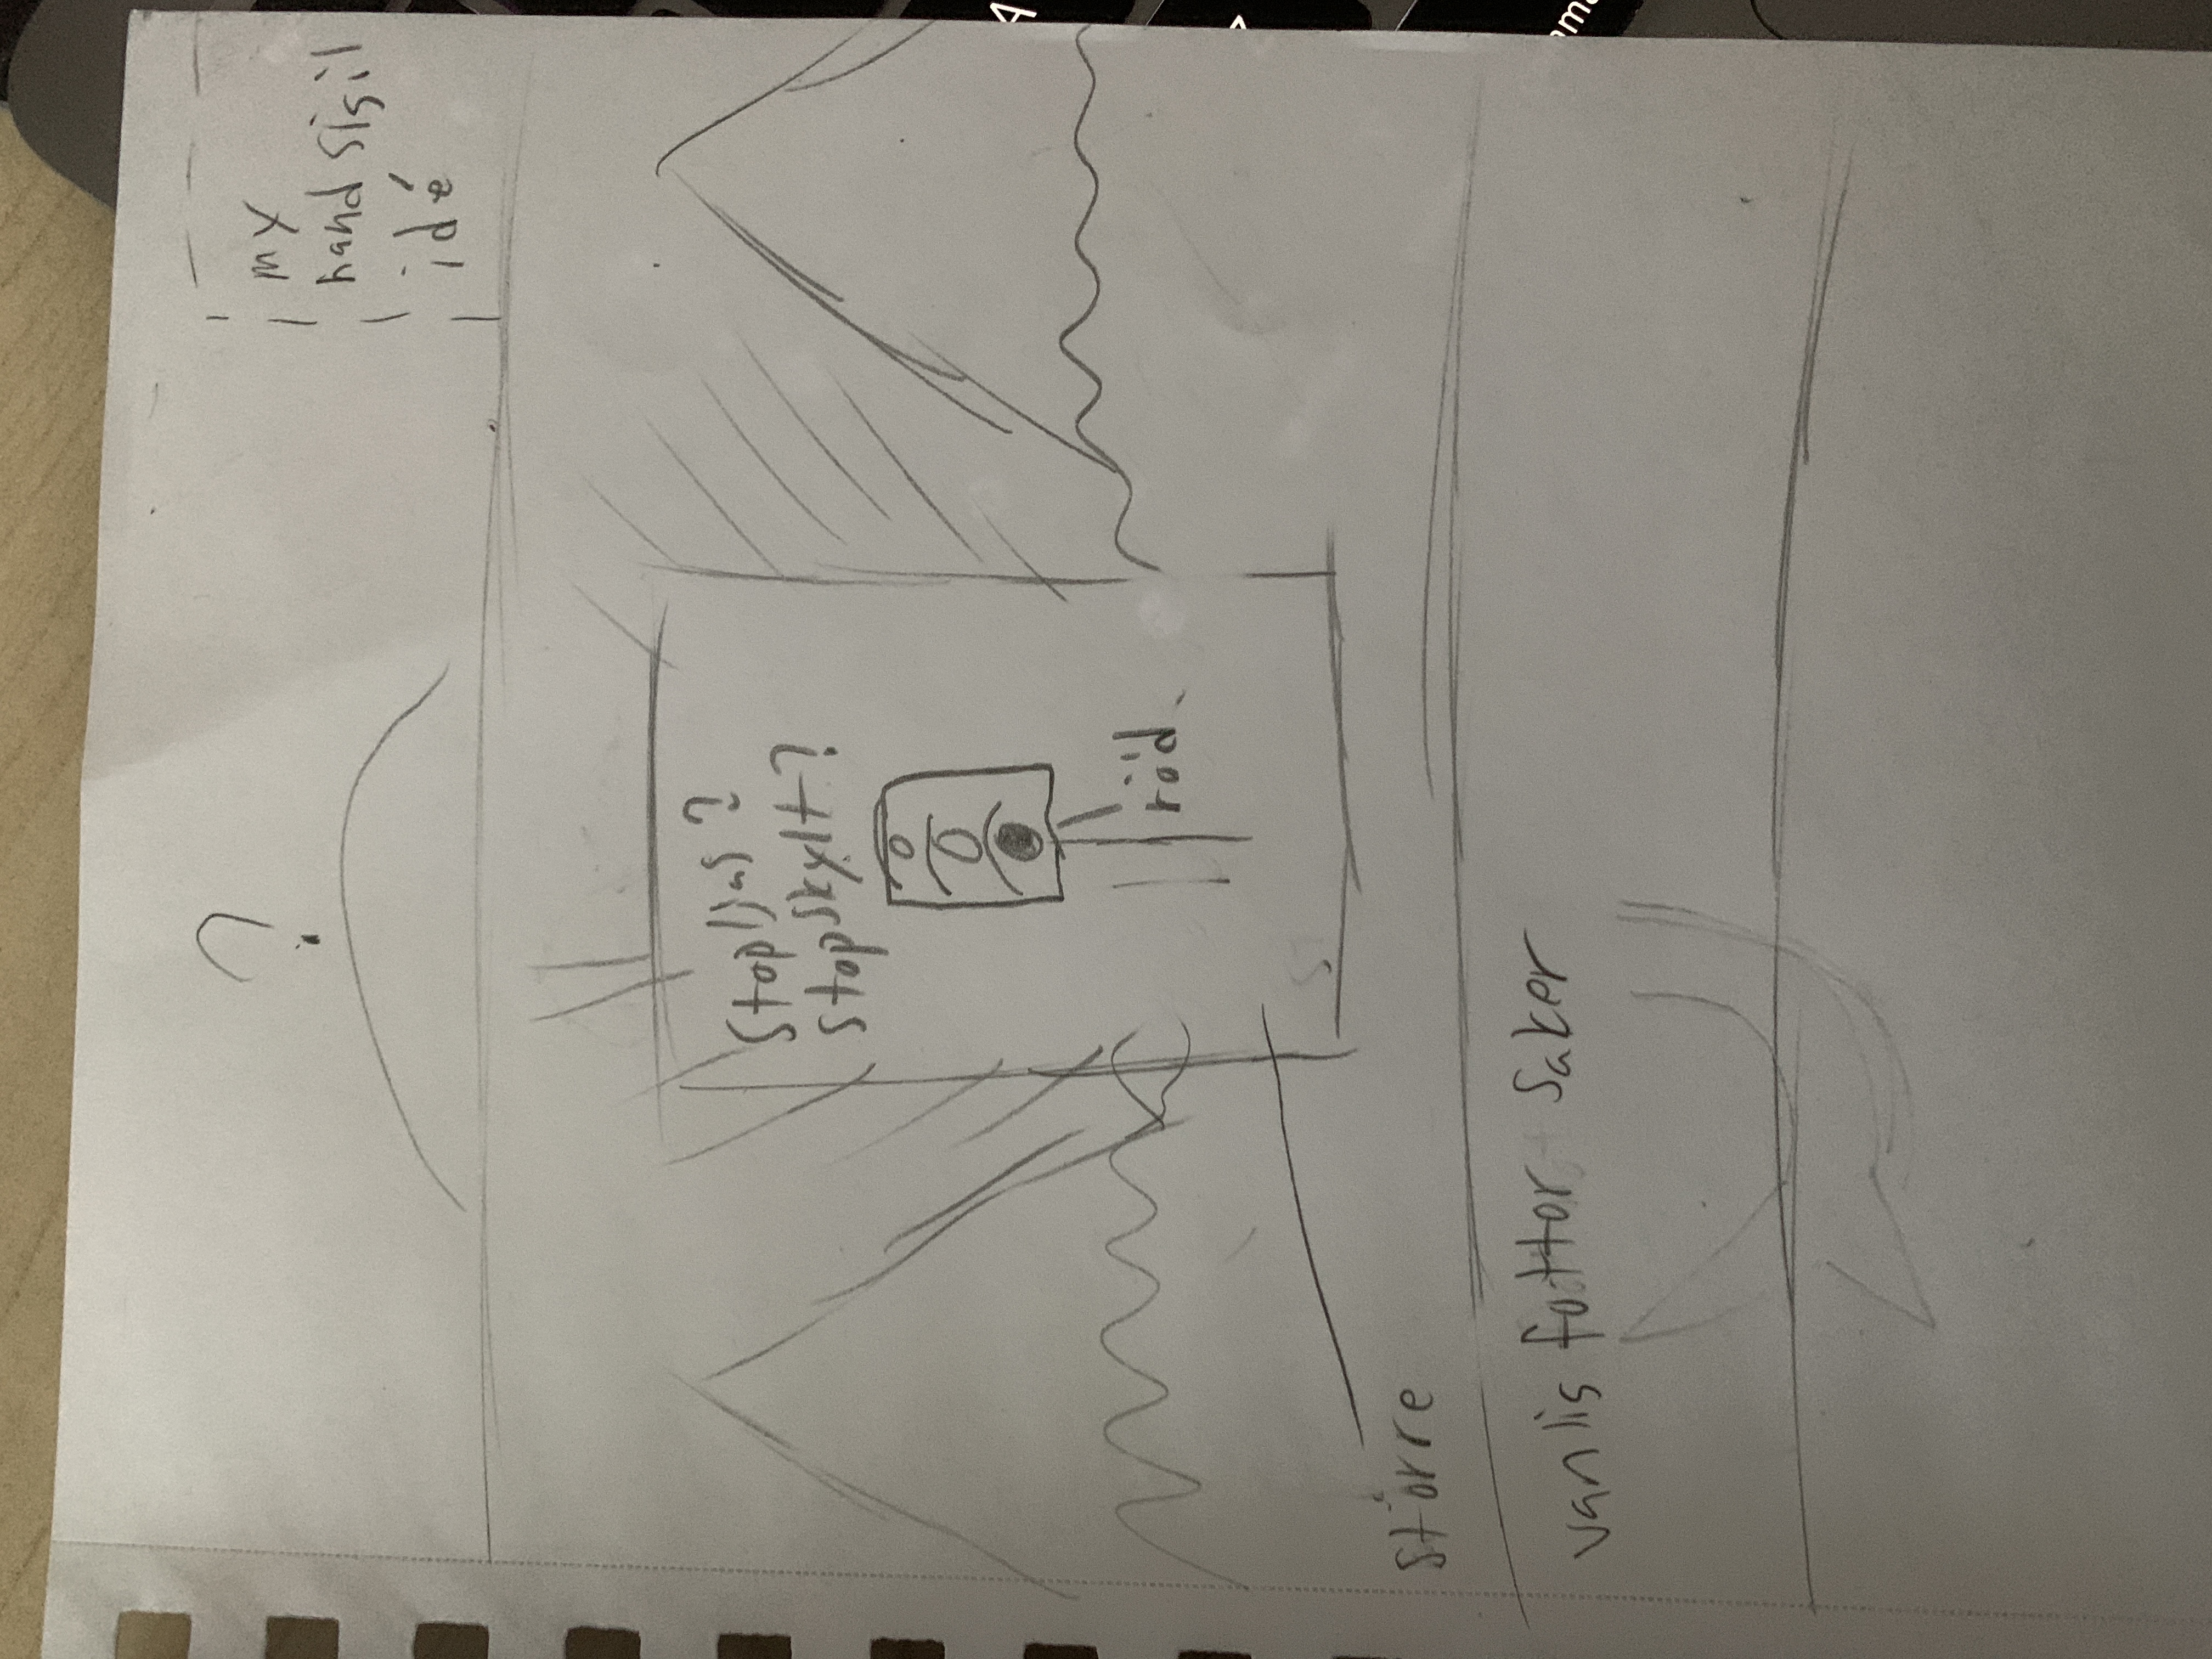 ?
my
hand sigil
idé
Stopljas?
Stopskylt?
röd.
större
vanlis fottor saker